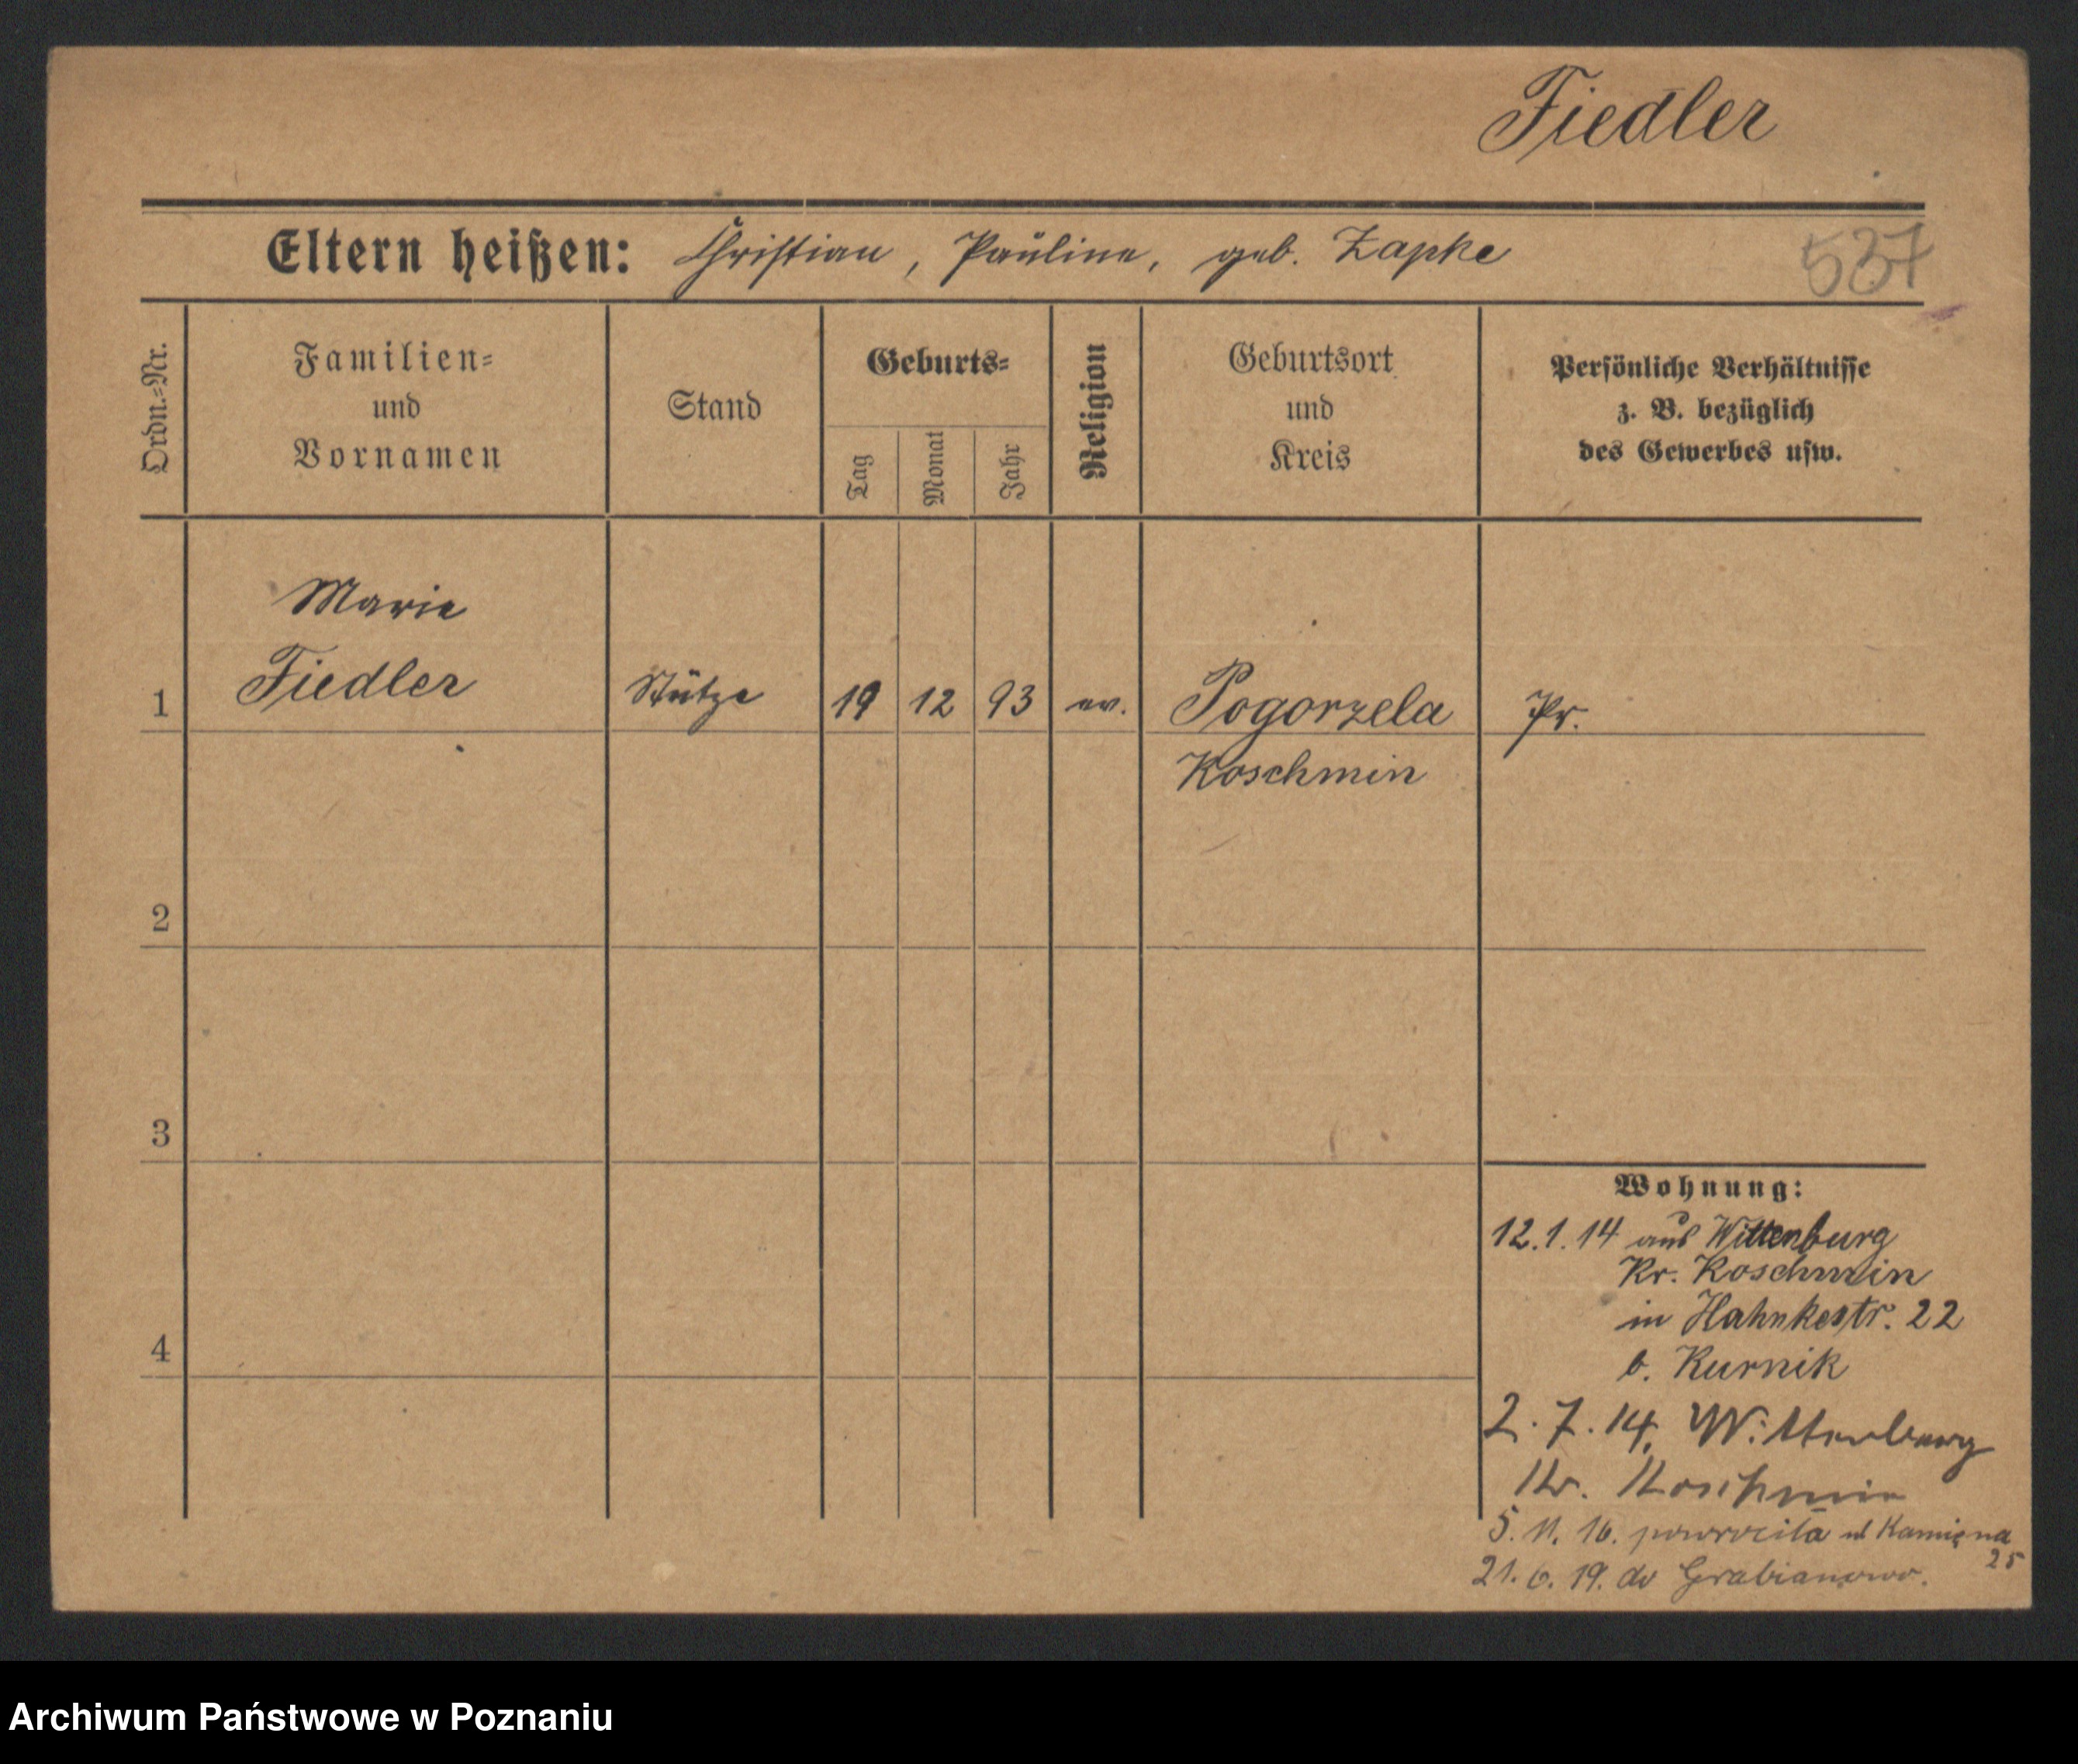 Fiedler
Eltern heißen: Christian, Pauline, geb. Zapke
537
Ordn.-Nr.
Familien-
und
Vornamen
Stand
Geburts-
Tag
Monat
Jahr
Religion
Geburtsort
und
Kreis
Persönliche Verhältnisse
z. B. bezüglich
des Gewerbes usw.
Marie
1 Fiedler Stütze 19 12 93 ev. Pogorzela Pr.
Koschmin
2
3
4
Wohnung:
12.1.14 aus Wittenburg
Kr. Koschmin
in Hahnkestr. 22
b. Kurnik
2.7.14, Wittenburg
Kr. Koschmin
5. 11. 16. powrocila ul Kamięna
25
21. 6. 19. do Grabianowo.
Archiwum Państwowe w Poznaniu